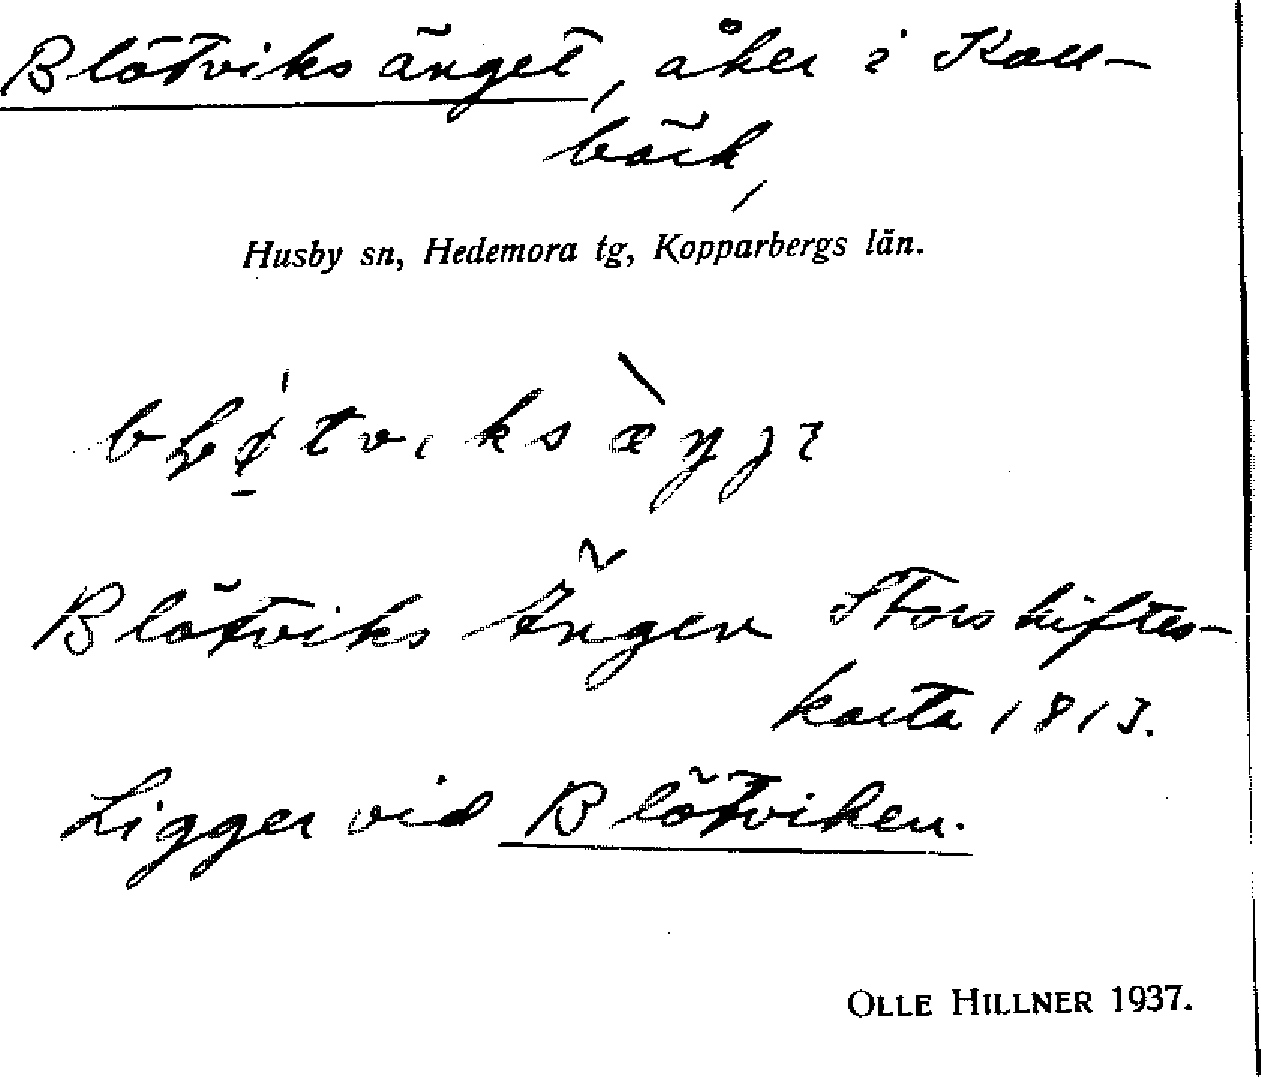 Blötviksänget, åker i Kall-
bäck,
Husby sn, Hedemora tg, Kopparbergs län.
Blötviks Ängen Storskiftes-
karta 1813.
Ligger vid Blötviken.
OLLE HILLNER 1937.